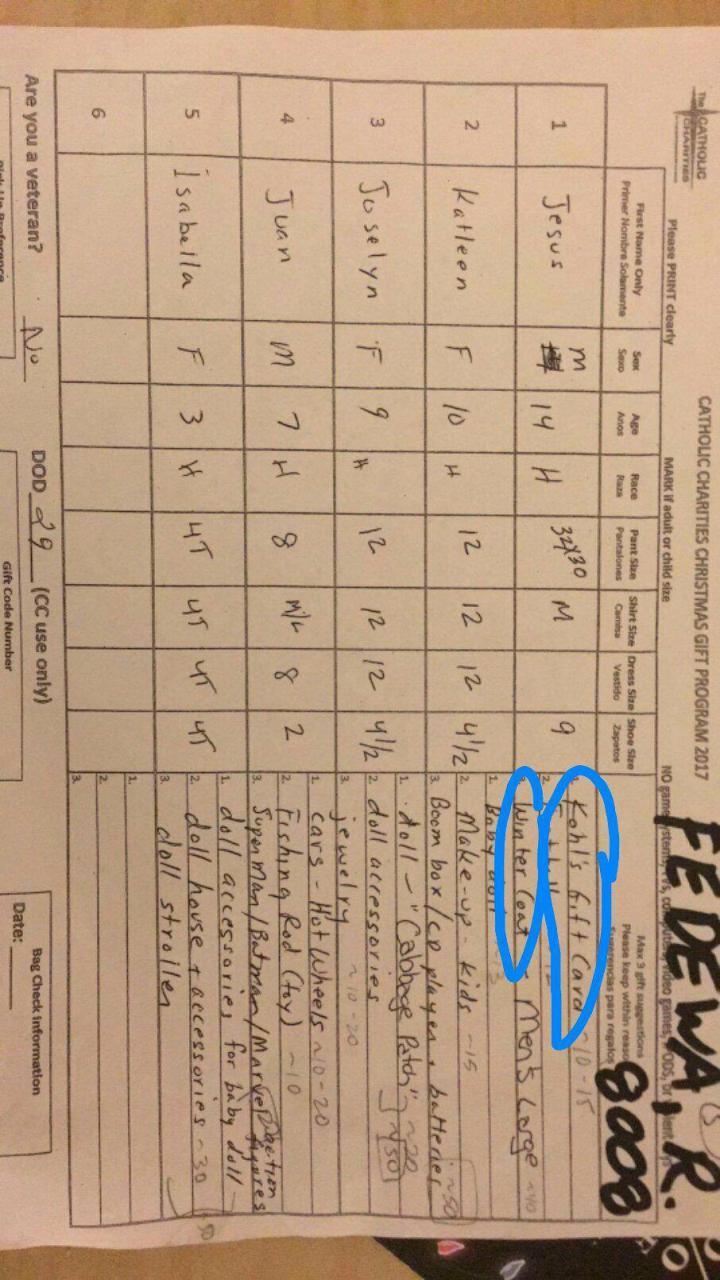 FEDEWA, R.
8008
The CATHOLIC CHARITIES
CATHOLIC CHARITIES CHRISTMAS GIFT PROGRAM 2017
Please PRINT clearly
MARK if adult or child size
First Name Only Sex Age Race Pant Size Shirt Size Dress Size Shoe Size Max 3 gift suggestions
Primer Nombre Solamente Sexo Anos Raza Pantalones Camisa Vestido Zapatos Please keep within reason
para regalos
1 Jesus M 14 H 32x30 M 9
Kohl's Gift Card ~10-15
2.
Winter Coat, Men's Large ~40
2 Katleen F 10 H 12 12 12 4 1/2
1. Baby doll
2. Make-up - kids ~15
3. Boom box/cd player + batteries ~50
3 Joselyn F 9 H 12 12 12 4 1/2
1. doll - "Cabbage Patch" ~20
2. doll accessories
3. jewelry ~10-20
4 Juan M 7 H 8 M/L 8 2
1. cars - Hot Wheels ~10-20
2. Fishing Rod (toy) ~10
3. Superman/Batman/Marvel action figures
5 Isabella F 3 H 4T 4T 4T 4T
1. doll accessories for baby doll
2. doll house + accessories ~30
3. doll stroller
6
1.
2.
3.
Are you a veteran? No DOD 29 (CC use only)
Gift Code Number
Bag Check Information
Date: